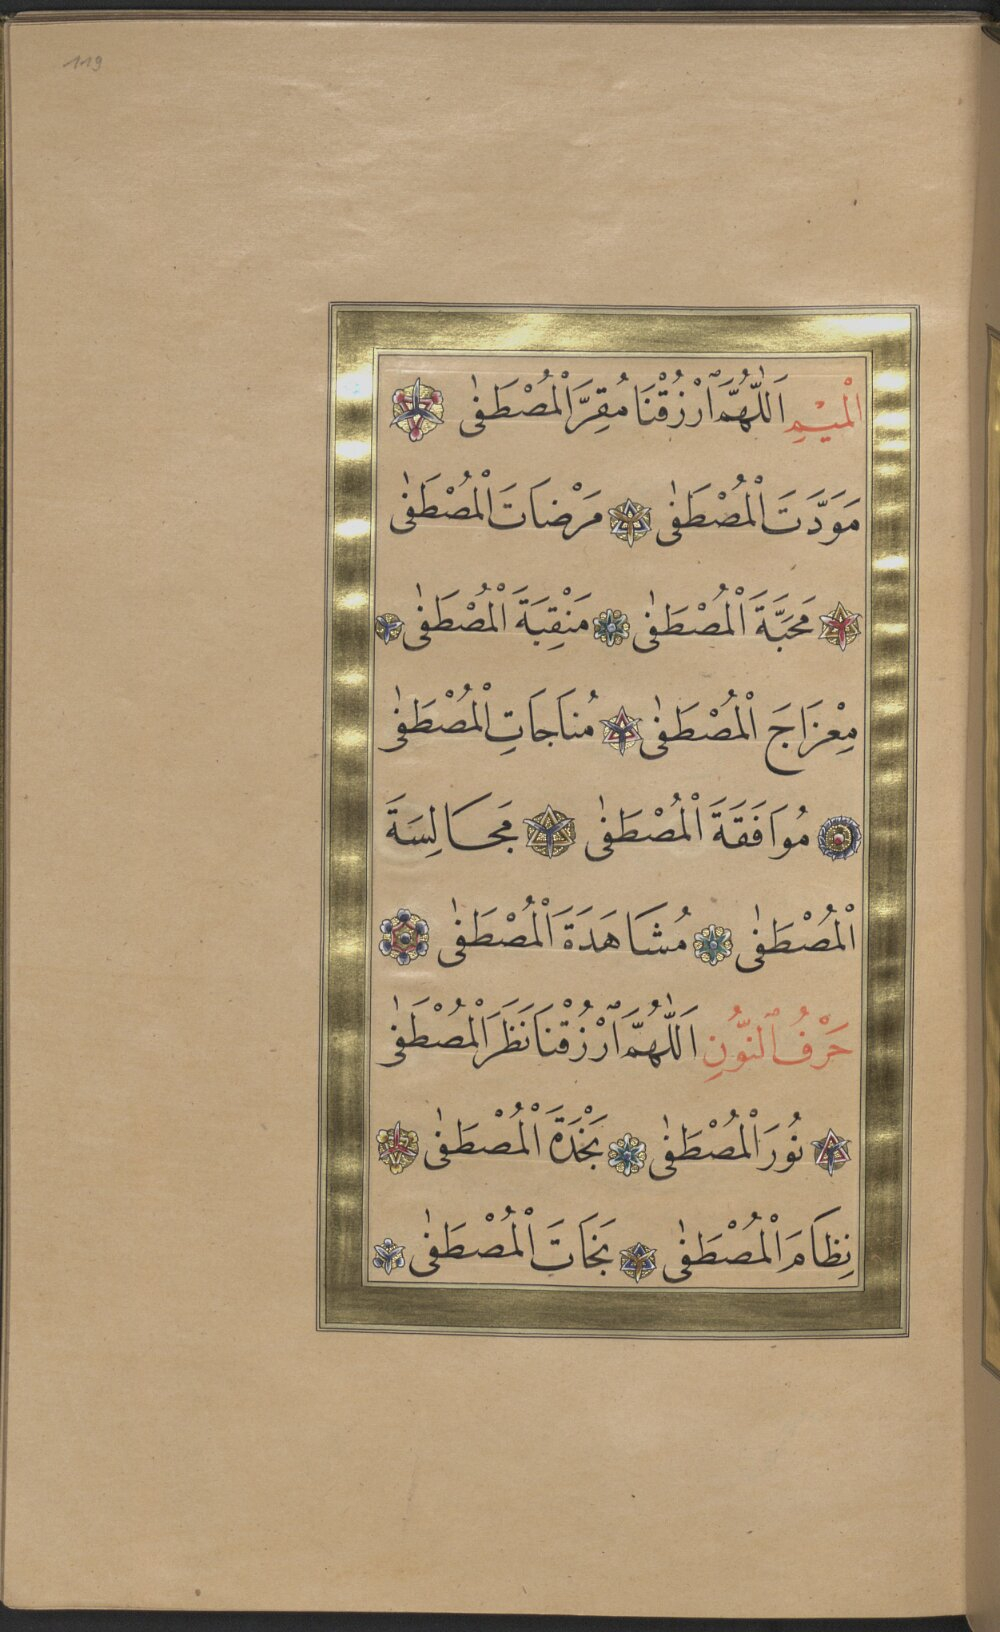 119
الْمِيْمِ اَللّٰهُمَّ ارْزُقْنَا مُقِرَّ الْمُصْطَفٰى
مَوَدَّتَ الْمُصْطَفٰى مَرْضَاتَ الْمُصْطَفٰى
مَحَبَّةَ الْمُصْطَفٰى مَنْقِبَةَ الْمُصْطَفٰى
مِعْرَاجَ الْمُصْطَفٰى مُنَاجَاتِ الْمُصْطَفٰى
مُوَافَقَةَ الْمُصْطَفٰى مَجَالِسَةَ
الْمُصْطَفٰى مُشَاهَدَةَ الْمُصْطَفٰى
حَرْفُ النُّوْنِ اَللّٰهُمَّ ارْزُقْنَا نَظَرَ الْمُصْطَفٰى
نُورَ الْمُصْطَفٰى نَجْدَةَ الْمُصْطَفٰى
نِظَامَ الْمُصْطَفٰى نَجَاتَ الْمُصْطَفٰى